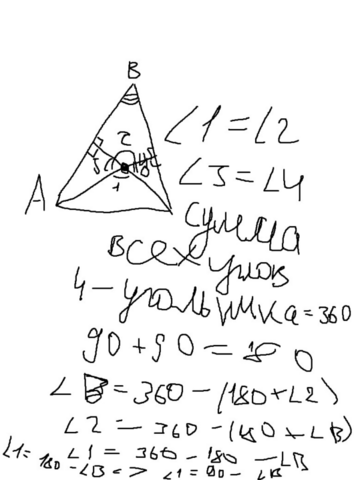 B
2
5
4
1
A
∠1 = ∠2
∠3 = ∠4
сумма
всех углов
4-угольника = 360
90 + 90 = 180
∠B = 360 - (180 + ∠2)
∠2 = 360 - (180 + ∠B)
∠1 = 360 - 180 - ∠B
∠1 = 180 - ∠B <=> ∠1 = 80 - ∠B